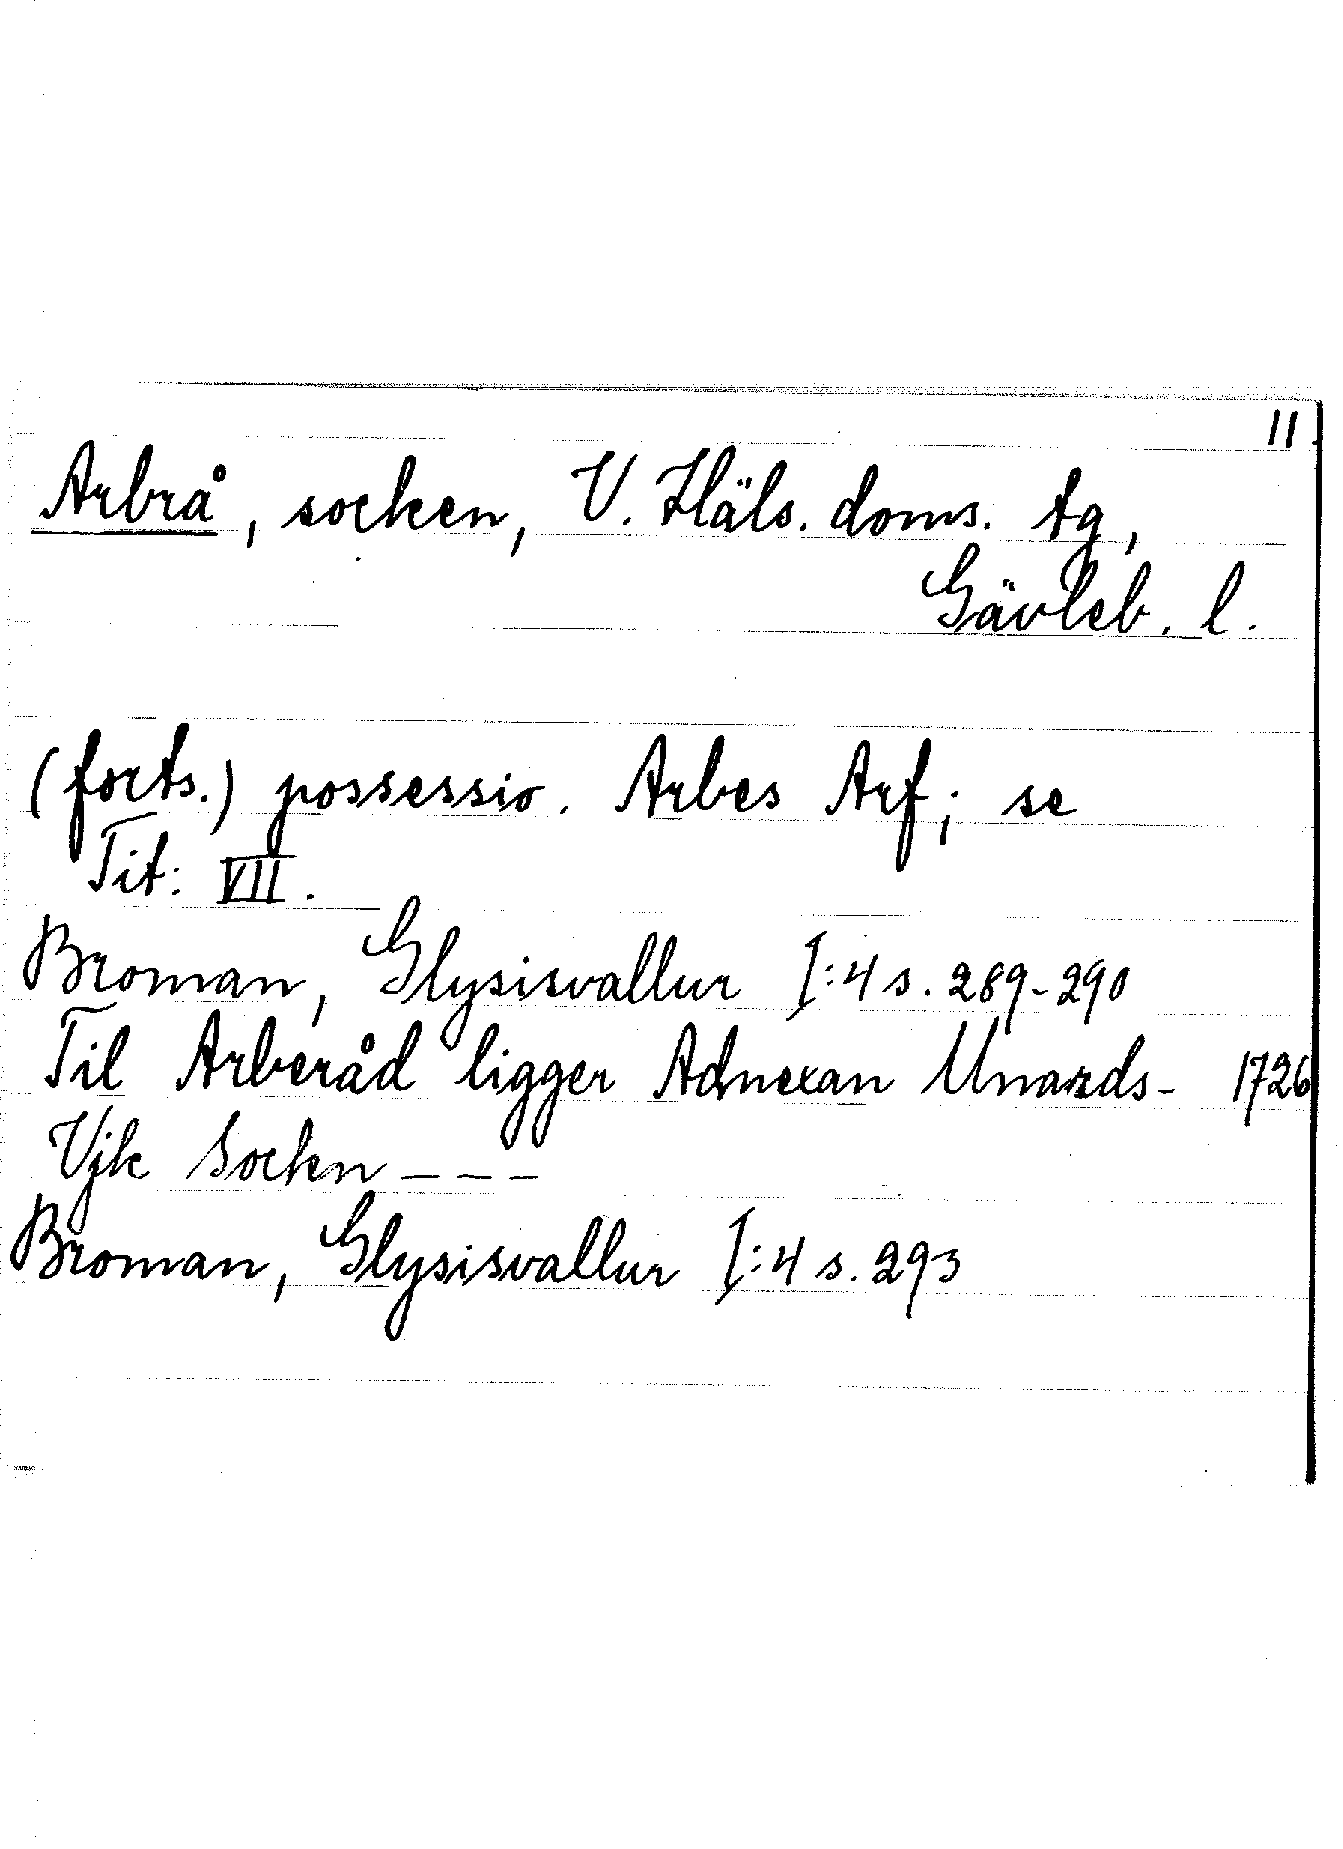 11.
Arbrå, socken, V. Häls. doms. tg,
Gävleb. l.
(forts.) possessio. Arbes Arf; se
Tit: VII.
Broman, Glysisvallur I:4 s. 289-290
Til Arberåd ligger Adnexan Unards- 1726
Vjk Sockn ---
Broman, Glysisvallur I:4 s. 293